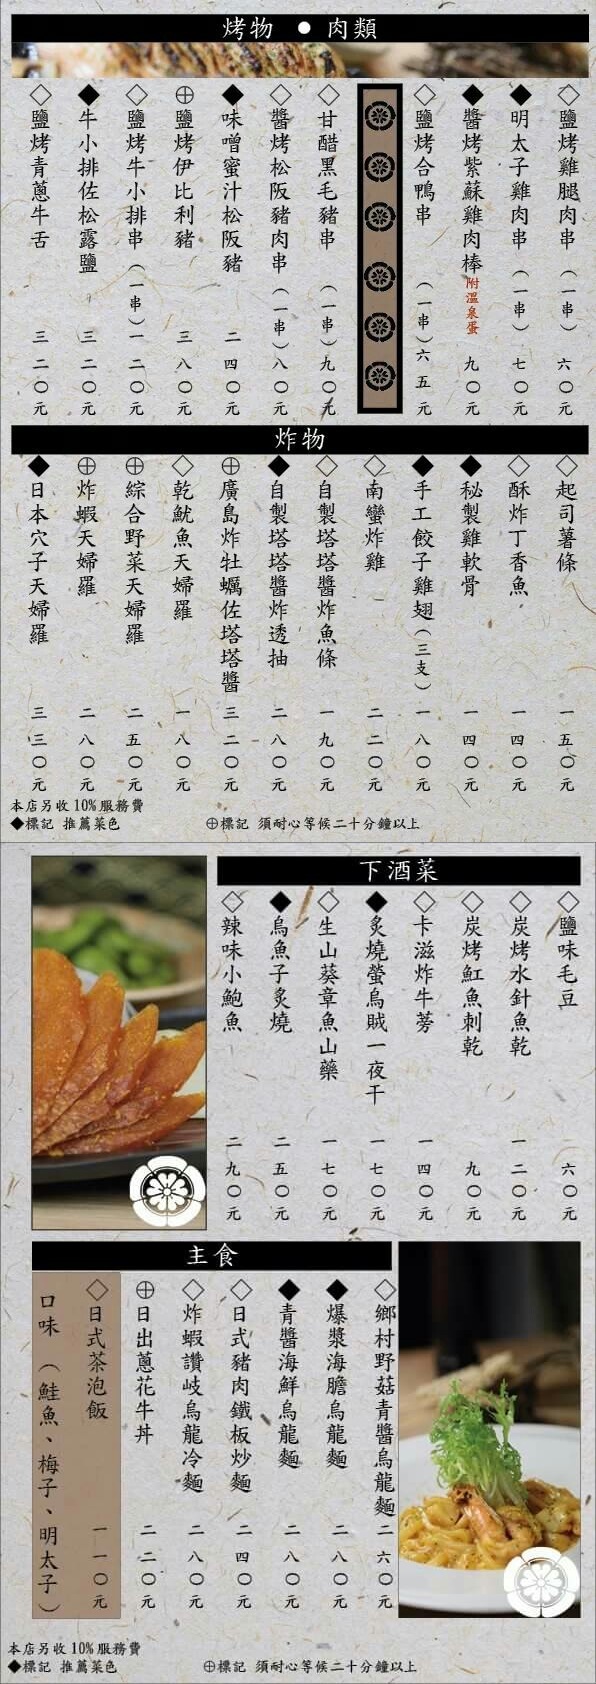 烤物 ● 肉類
◇鹽烤雞腿肉串（一串）六〇元
◆明太子雞肉串（一串）七〇元
◆醬烤紫蘇雞肉棒附溫泉蛋 九〇元
◇鹽烤合鴨串（一串）六五元
◇甘醋黑毛豬串（一串）九〇元
◇醬烤松阪豬肉串（一串）八〇元
◆味噌蜜汁松阪豬 二四〇元
⊕鹽烤伊比利豬 三八〇元
◇鹽烤牛小排串（一串）一二〇元
◆牛小排佐松露鹽 三二〇元
◇鹽烤青蔥牛舌 三二〇元
炸物
◇起司薯條 一五〇元
◇酥炸丁香魚 一四〇元
◆秘製雞軟骨 一四〇元
◆手工餃子雞翅（三支）一八〇元
◇南蠻炸雞 二二〇元
◇自製塔塔醬炸魚條 一九〇元
◆自製塔塔醬炸透抽 二八〇元
⊕廣島炸牡蠣佐塔塔醬 三二〇元
◇乾魷魚天婦羅 一八〇元
⊕綜合野菜天婦羅 二五〇元
⊕炸蝦天婦羅 二八〇元
◆日本穴子天婦羅 三三〇元
本店另收10%服務費
◆標記 推薦菜色 ⊕標記 須耐心等候二十分鐘以上
下酒菜
◇鹽味毛豆 六〇元
◇炭烤水針魚乾 一二〇元
◇炭烤魟魚刺乾 九〇元
◇卡滋炸牛蒡 一四〇元
◆炙燒螢烏賊一夜干 一七〇元
◇生山葵章魚山藥 一七〇元
◆烏魚子炙燒 二五〇元
◇辣味小鮑魚 二九〇元
主食
◇鄉村野菇青醬烏龍麵 二六〇元
◆爆漿海膽烏龍麵 二八〇元
◆青醬海鮮烏龍麵 二八〇元
◇日式豬肉鐵板炒麵 二四〇元
◇炸蝦讚岐烏龍冷麵 二八〇元
⊕日出蔥花牛丼 二二〇元
◇日式茶泡飯 一一〇元
口味（鮭魚、梅子、明太子）
本店另收10%服務費
◆標記 推薦菜色 ⊕標記 須耐心等候二十分鐘以上